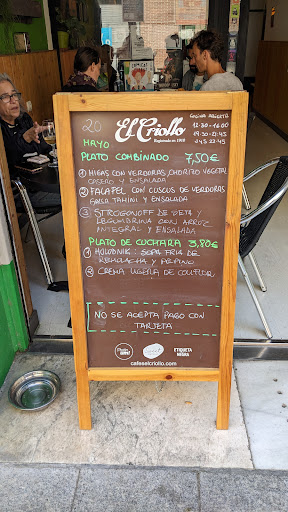 20
MAYO
El Criollo
Registrado en 1910
COCINA ABIERTA
12:30-16:00
19:30-21:45
PLATO COMBINADO 7,50€
CON VERDURAS, CHORIZO VEGETAL
CASERO Y ENSALADA
2 FALAFEL CON CUSCUS DE VERDURAS
SALSA TAHINI Y ENSALADA
3 STROGONOFF DE SETA Y
LEGUMBRINA CON ARROZ
INTEGRAL Y ENSALADA
PLATO DE CUCHARA 3,80€
SOPA FRIA DE
REMOLACHA Y PEPINO
CREMA LIGERA DE COLIFLOR
NO SE ACEPTA PAGO CON
TARJETA
ETIQUETA
NEGRA
cafeselcriollo.com